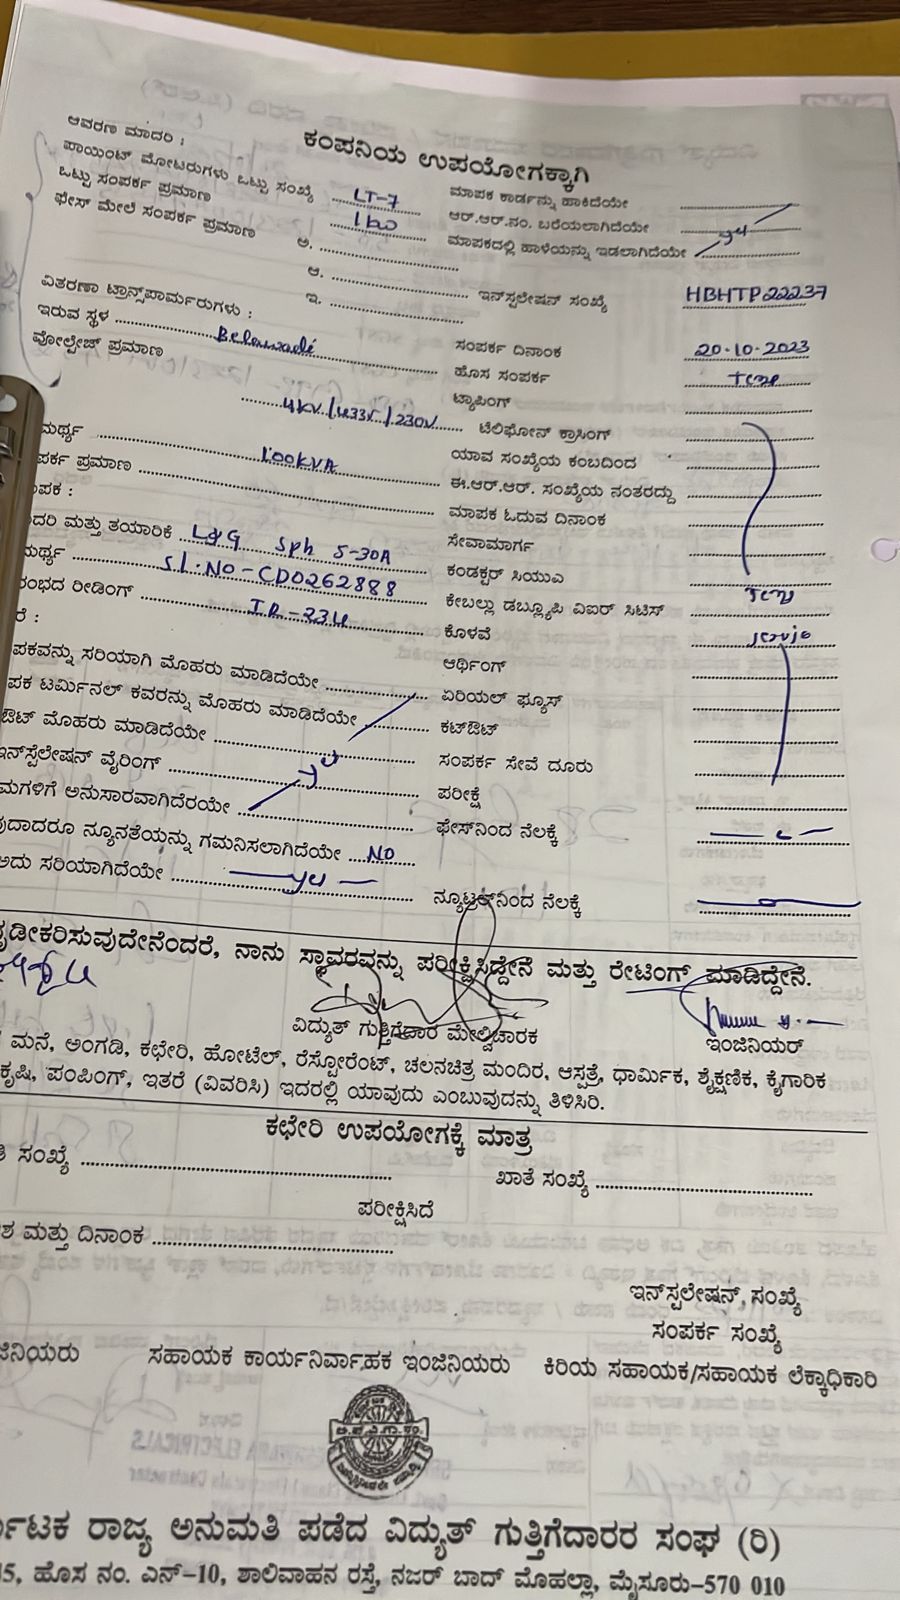 ಕಂಪನಿಯ ಉಪಯೋಗಕ್ಕಾಗಿ
ಆವರಣ ಮಾದರಿ :
ಪಾಯಿಂಟ್ ಮೋಟರುಗಳು ಒಟ್ಟು ಸಂಖ್ಯೆ LT-7 ಮಾಪಕ ಕಾರ್ಡನ್ನು ಹಾಕಿದೆಯೇ
ಒಟ್ಟು ಸಂಪರ್ಕ ಪ್ರಮಾಣ ಆರ್.ಆರ್.ನಂ. ಬರೆಯಲಾಗಿದೆಯೇ
ಫೇಸ್ ಮೇಲೆ ಸಂಪರ್ಕ ಪ್ರಮಾಣ ಅ. ಮಾಪಕದಲ್ಲಿ ಹಾಳೆಯನ್ನು ಇಡಲಾಗಿದೆಯೇ
ಆ. ಇನ್‌ಸ್ಪಲೇಷನ್ ಸಂಖ್ಯೆ HBHTP22237
ಇ.
ವಿತರಣಾ ಟ್ರಾನ್ಸ್‌ಪಾರ್ಮರುಗಳು : ಸಂಪರ್ಕ ದಿನಾಂಕ 20-10-2023
ಇರುವ ಸ್ಥಳ ಹೊಸ ಸಂಪರ್ಕ
ವೋಲ್ಟೇಜ್ ಪ್ರಮಾಣ ಟ್ಯಾಪಿಂಗ್
/433V/230V ಟೆಲಿಫೋನ್ ಕ್ರಾಸಿಂಗ್
ಮರ್ಥ್ಯ 100KVA ಯಾವ ಸಂಖ್ಯೆಯ ಕಂಬದಿಂದ
ಪರ್ಕ ಪ್ರಮಾಣ ಈ.ಆರ್.ಆರ್. ಸಂಖ್ಯೆಯ ನಂತರದ್ದು
ಾಪಕ : ಮಾಪಕ ಓದುವ ದಿನಾಂಕ
ದರಿ ಮತ್ತು ತಯಾರಿಕೆ L&G Sph 5-30A ಸೇವಾಮಾರ್ಗ
ಮರ್ಥ್ಯ Sl:No-CD0262888 ಕಂಡಕ್ಟರ್ ಸಿಯುವಿ
ರಂಭದ ರೀಡಿಂಗ್ IR-234 ಕೇಬಲ್ಲು ಡಬ್ಲ್ಯೂಪಿ ವಿಐರ್ ಸಿಟಿಸ್
ರೆ : ಕೊಳವೆ
ಪಕವನ್ನು ಸರಿಯಾಗಿ ಮೊಹರು ಮಾಡಿದೆಯೇ ಆರ್ಥಿಂಗ್
ಪಕ ಟರ್ಮಿನಲ್ ಕವರನ್ನು ಮೊಹರು ಮಾಡಿದೆಯೇ ಏರಿಯಲ್ ಫ್ಯೂಸ್
ಔಟ್ ಮೊಹರು ಮಾಡಿದೆಯೇ ಕಟ್‌ಔಟ್
ಇನ್‌ಸ್ಪೆಲೇಷನ್ ವೈರಿಂಗ್ ಸಂಪರ್ಕ ಸೇವೆ ದೂರು
ಮಗಳಿಗೆ ಅನುಸಾರವಾಗಿದೆರಯೇ ಪರೀಕ್ಷೆ
ವುದಾದರೂ ನ್ಯೂನತೆಯನ್ನು ಗಮನಿಸಲಾಗಿದೆಯೇ NO ಫೇಸ್‌ನಿಂದ ನೆಲಕ್ಕೆ
ಅದು ಸರಿಯಾಗಿದೆಯೇ ನ್ಯೂಟ್ರಲ್‌ನಿಂದ ನೆಲಕ್ಕೆ
ದೃಡೀಕರಿಸುವುದೇನೆಂದರೆ, ನಾನು ಸ್ಥಾವರವನ್ನು ಪರೀಕ್ಷಿಸಿದ್ದೇನೆ ಮತ್ತು ರೇಟಿಂಗ್ ಮಾಡಿದ್ದೇನೆ.
ವಿದ್ಯುತ್ ಗುತ್ತಿಗೆದಾರ ಮೇಲ್ವಿಚಾರಕ ಇಂಜಿನಿಯರ್
ಮನೆ, ಅಂಗಡಿ, ಕಛೇರಿ, ಹೋಟೆಲ್, ರೆಸ್ಟೋರೆಂಟ್, ಚಲನಚಿತ್ರ ಮಂದಿರ, ಆಸ್ಪತ್ರೆ, ಧಾರ್ಮಿಕ, ಶೈಕ್ಷಣಿಕ, ಕೈಗಾರಿಕ
ಕೃಷಿ, ಪಂಪಿಂಗ್, ಇತರೆ (ವಿವರಿಸಿ) ಇದರಲ್ಲಿ ಯಾವುದು ಎಂಬುವುದನ್ನು ತಿಳಿಸಿರಿ.
ಕಛೇರಿ ಉಪಯೋಗಕ್ಕೆ ಮಾತ್ರ
ಸಂಖ್ಯೆ ಖಾತೆ ಸಂಖ್ಯೆ
ಪರೀಕ್ಷಿಸಿದೆ
ಶ ಮತ್ತು ದಿನಾಂಕ
ಇನ್‌ಸ್ಪಲೇಷನ್, ಸಂಖ್ಯೆ
ಸಂಪರ್ಕ ಸಂಖ್ಯೆ
ಜಿನಿಯರು ಸಹಾಯಕ ಕಾರ್ಯನಿರ್ವಾಹಕ ಇಂಜಿನಿಯರು ಕಿರಿಯ ಸಹಾಯಕ/ಸಹಾಯಕ ಲೆಕ್ಕಾಧಿಕಾರಿ
ರ್ನಾಟಕ ರಾಜ್ಯ ಅನುಮತಿ ಪಡೆದ ವಿದ್ಯುತ್ ಗುತ್ತಿಗೆದಾರರ ಸಂಘ (ರಿ)
5, ಹೊಸ ನಂ. ಎನ್-10, ಶಾಲಿವಾಹನ ರಸ್ತೆ, ನಜರ್ ಬಾದ್ ಮೊಹಲ್ಲಾ, ಮೈಸೂರು-570 010